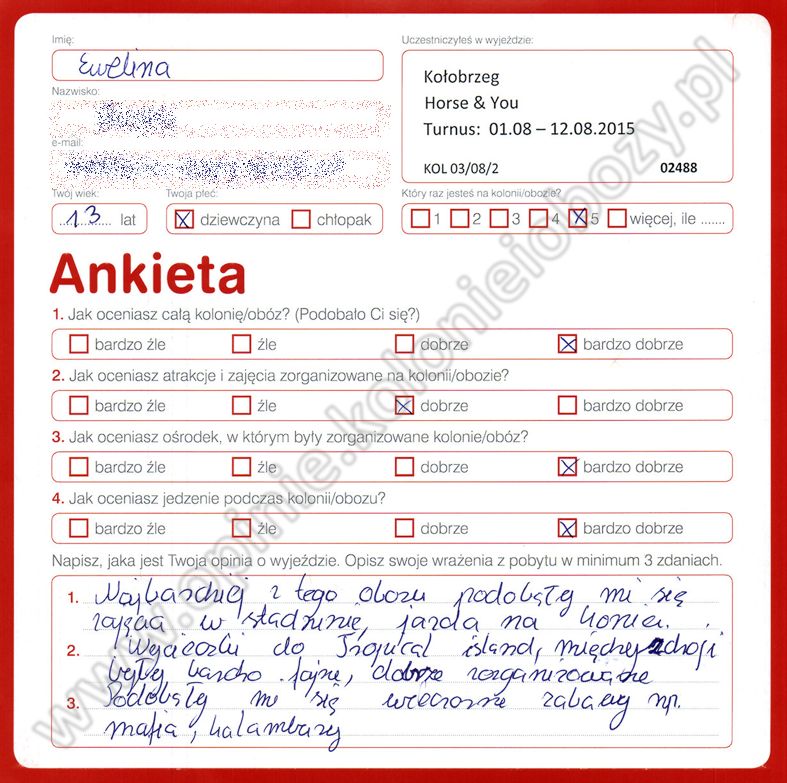 Imię:
Ewelina
Nazwisko:
e-mail:
Twój wiek:
13 lat
Twoja płeć:
dziewczyna chłopak
Uczestniczyłeś w wyjeździe:
Kołobrzeg
Horse & You
Turnus: 01.08 – 12.08.2015
KOL 03/08/2 02488
Który raz jesteś na kolonii/obozie?
1 2 3 4 5 więcej, ile .......
Ankieta
1. Jak oceniasz całą kolonię/obóz? (Podobało Ci się?)
bardzo źle źle dobrze bardzo dobrze
2. Jak oceniasz atrakcje i zajęcia zorganizowane na kolonii/obozie?
bardzo źle źle dobrze bardzo dobrze
3. Jak oceniasz ośrodek, w którym były zorganizowane kolonie/obóz?
bardzo źle źle dobrze bardzo dobrze
4. Jak oceniasz jedzenie podczas kolonii/obozu?
bardzo źle źle dobrze bardzo dobrze
Napisz, jaka jest Twoja opinia o wyjeździe. Opisz swoje wrażenia z pobytu w minimum 3 zdaniach.
1. Najbardziej z tego obozu podobały mi się
zajęcia w stadninie, jazda na koniu.
2. Wycieczki do Tropical island, międzyzdroji
były bardzo fajne, dobrze zorganizowane
3. Podobały mi się wieczorne zabawy np.
mafia, kalambury
www.opinie.kolonieiobozy.pl